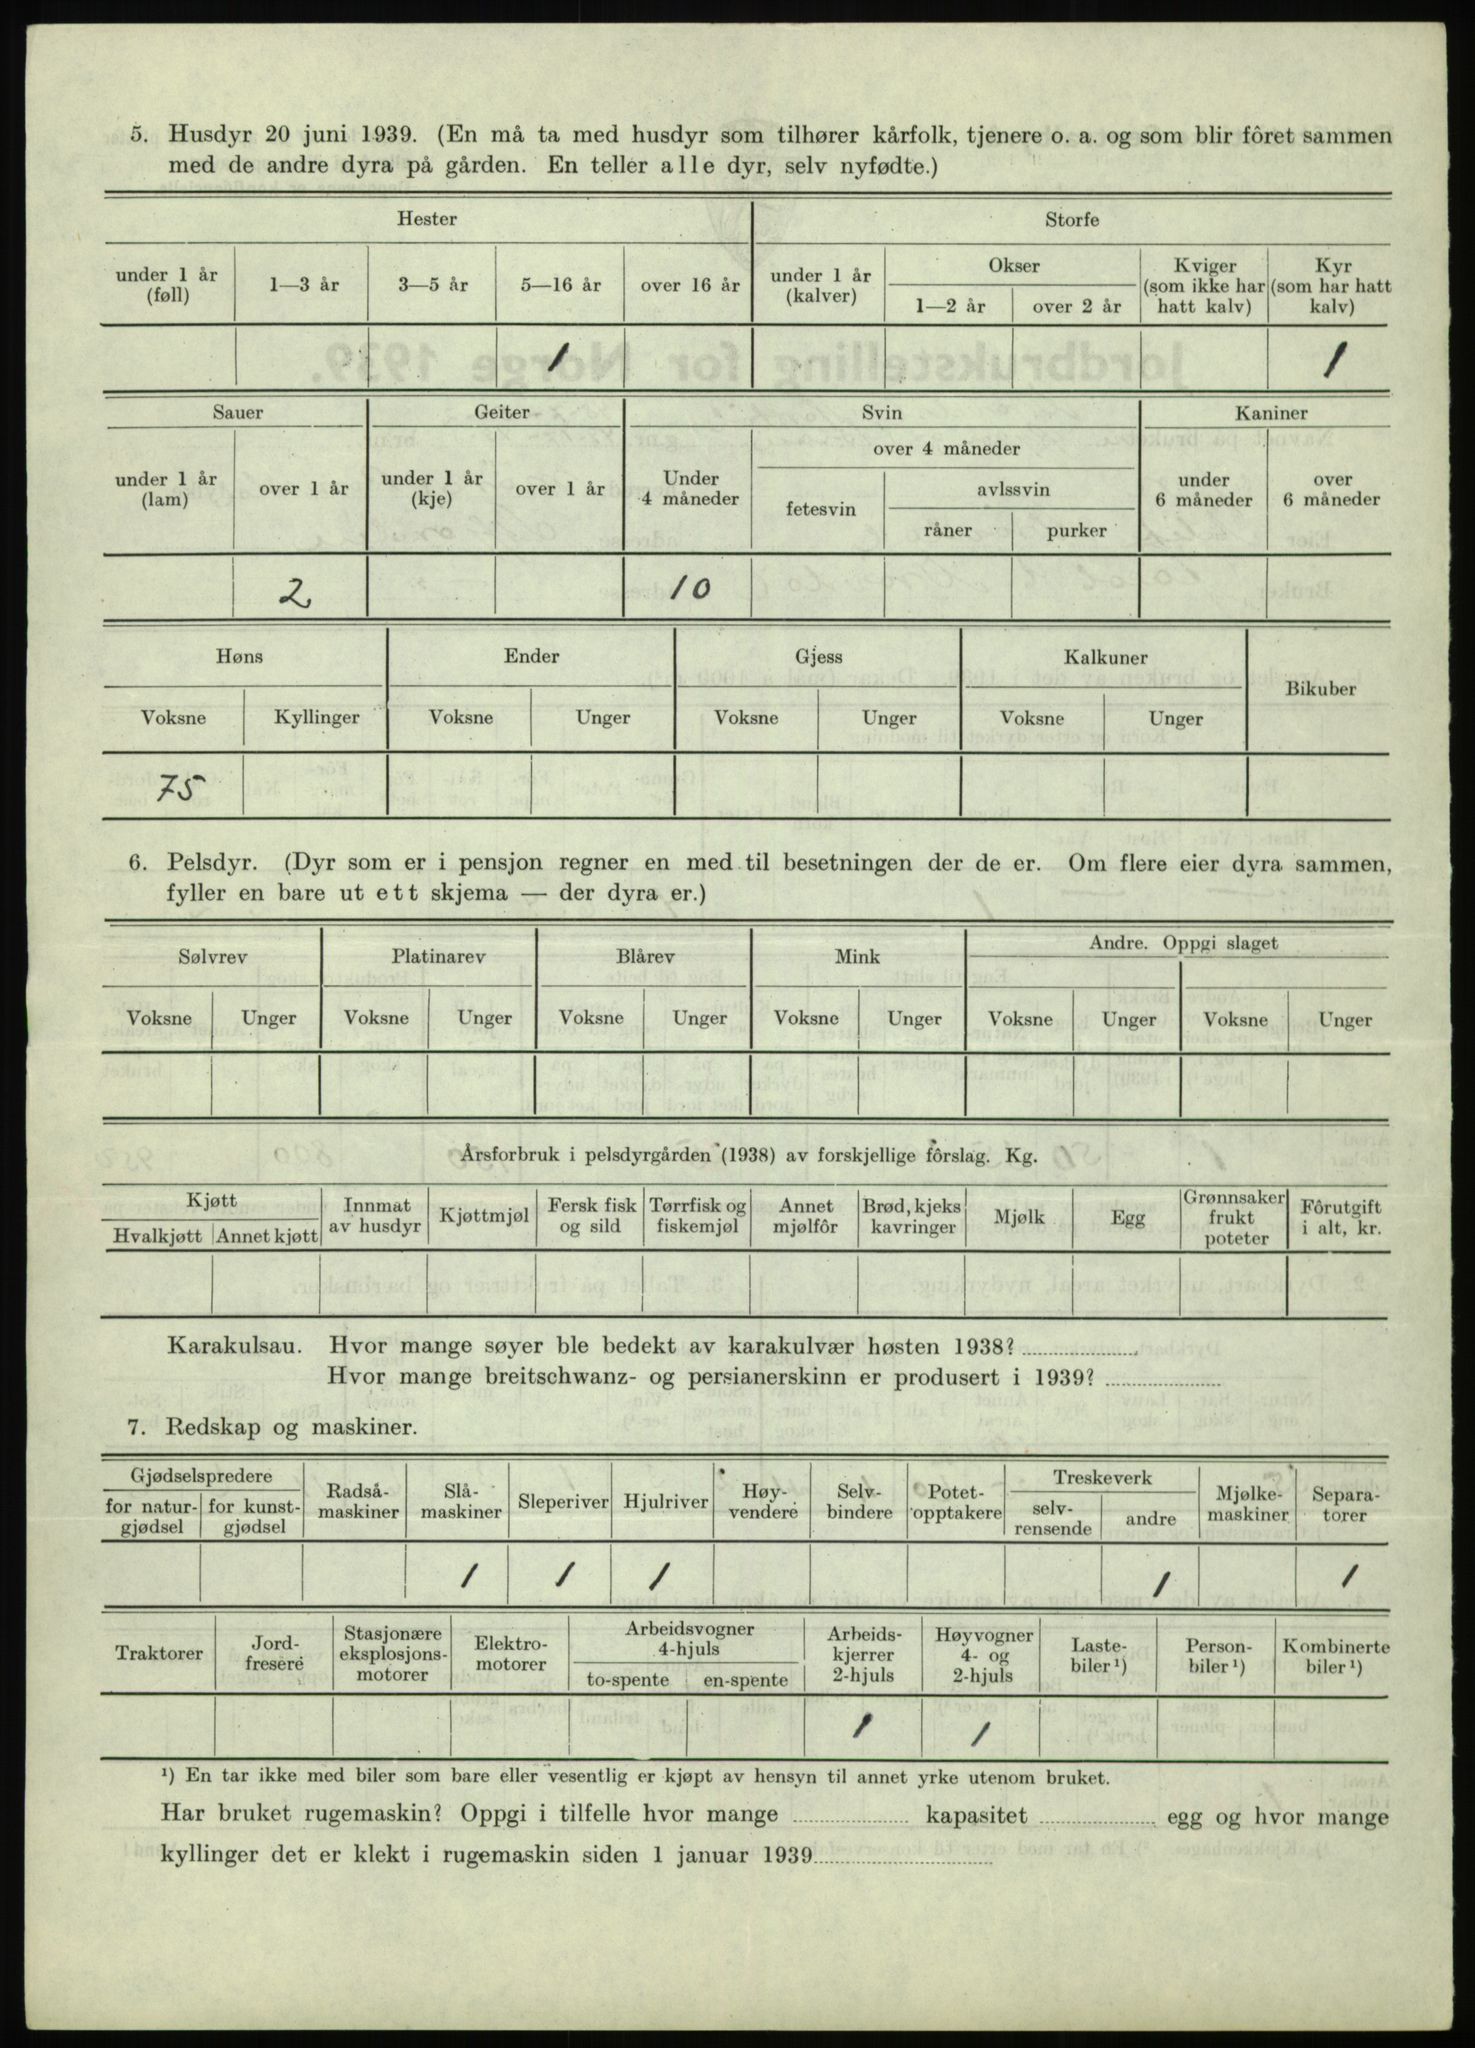 5. Husdyr 20 juni 1939. (En må ta med husdyr som tilhører kårfolk, tjenere o. a. og som blir fôret sammen
med de andre dyra på gården. En teller alle dyr, selv nyfødte.)
Hester Storfe
under 1 år (føll) 1—3 år 3—5 år 5—16 år over 16 år under 1 år (kalver) Okser 1—2 år over 2 år Kviger (som ikke har hatt kalv) Kyr (som har hatt kalv)
1 1
Sauer Geiter Svin Kaniner
under 1 år (lam) over 1 år under 1 år (kje) over 1 år Under 4 måneder over 4 måneder fetesvin avlssvin råner purker under 6 måneder over 6 måneder
2 10
Høns Ender Gjess Kalkuner Bikuber
Voksne Kyllinger Voksne Unger Voksne Unger Voksne Unger
75
6. Pelsdyr. (Dyr som er i pensjon regner en med til besetningen der de er. Om flere eier dyra sammen,
fyller en bare ut ett skjema — der dyra er.)
Sølvrev Platinarev Blårev Mink Andre. Oppgi slaget
Voksne Unger Voksne Unger Voksne Unger Voksne Unger Voksne Unger Voksne Unger
Årsforbruk i pelsdyrgården (1938) av forskjellige fôrslag. Kg.
Kjøtt Hvalkjøtt Annet kjøtt Innmat av husdyr Kjøttmjøl Fersk fisk og sild Tørrfisk og fiskemjøl Annet mjølfôr Brød, kjeks kavringer Mjølk Egg Grønnsaker frukt poteter Fôrutgift i alt, kr.
Karakulsau. Hvor mange søyer ble bedekt av karakulvær høsten 1938?
Hvor mange breitschwanz- og persianerskinn er produsert i 1939?
7. Redskap og maskiner.
Gjødselspredere for natur- gjødsel for kunst- gjødsel Radså- maskiner Slå- maskiner Sleperiver Hjulriver Høy- vendere Selv- bindere Potet- opptakere Treskeverk selv- rensende andre Mjølke- maskiner Separa- torer
1 1 1 1 1
Traktorer Jord- fresere Stasjonære eksplosjons- motorer Elektro- motorer Arbeidsvogner 4-hjuls to-spente en-spente Arbeids- kjerrer 2-hjuls Høyvogner 4- og 2-hjuls Laste- biler ¹) Person- biler ¹) Kombinerte biler ¹)
1 1
¹) En tar ikke med biler som bare eller vesentlig er kjøpt av hensyn til annet yrke utenom bruket.
Har bruket rugemaskin? Oppgi i tilfelle hvor mange kapasitet egg og hvor mange
kyllinger det er klekt i rugemaskin siden 1 januar 1939